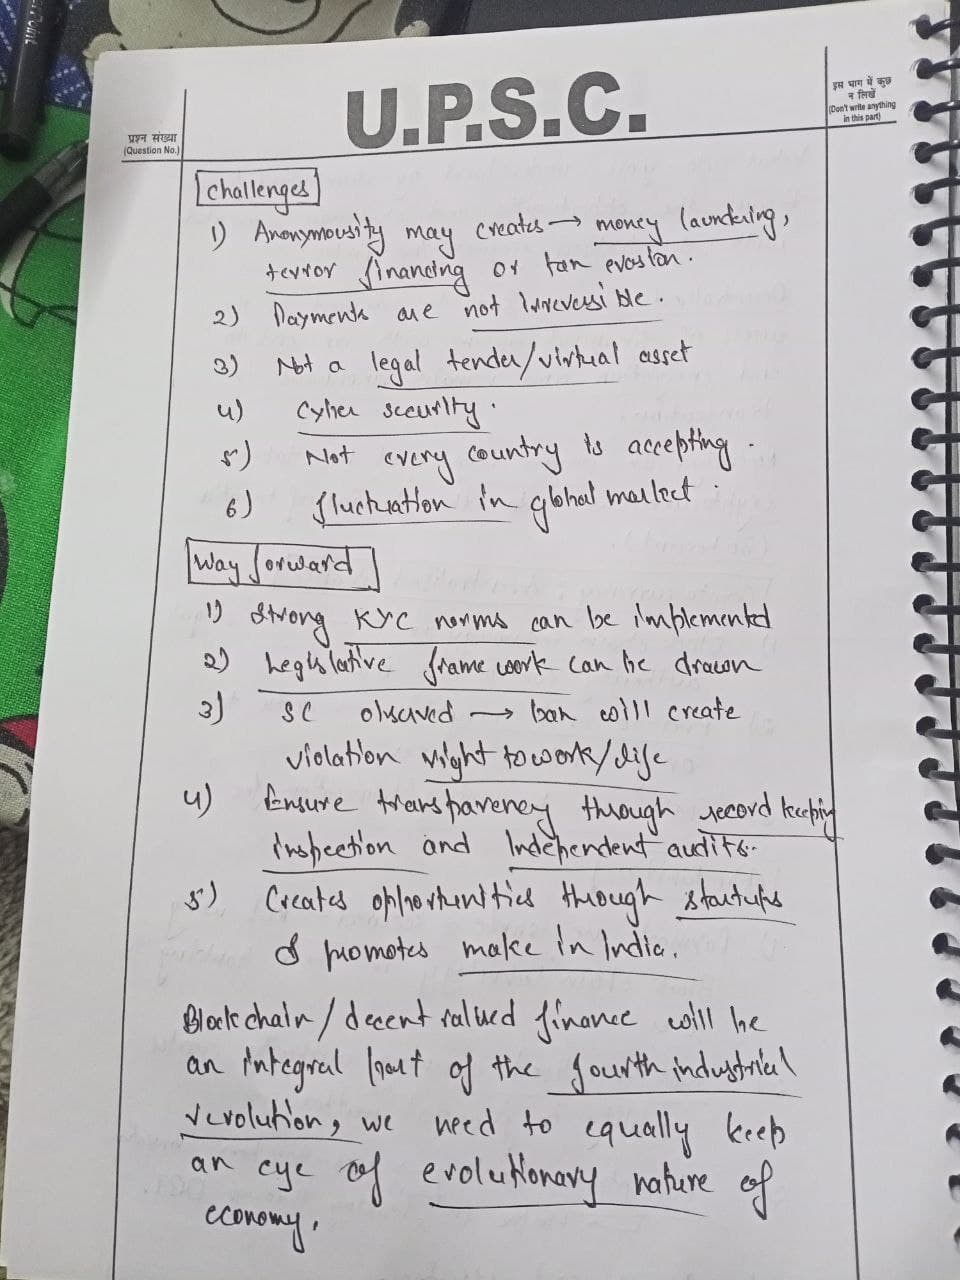 U.P.S.C.
प्रश्न संख्या
(Question No.)
इस भाग में कुछ
न लिखें
(Don't write anything
in this part)
Challenges
1) Anonymousity may creates → money laundering,
terror financing or tax evasion.
2) Payments are not irreversible.
3) Not a legal tender/virtual asset
4) Cyber security.
5) Not every country is accepting.
6) fluctuation in global market.
Way forward
1) Strong KYC norms can be implemented
2) Legislative frame work can be drawn
3) SC observed → ban will create
violation right to work/life
4) Ensure transparency through record keeping
inspection and Independent audits.
5) Creates opportunities through startups
& promotes make in India.
Blockchain/decentralised finance will be
an integral part of the fourth industrial
revolution, we need to equally keep
an eye of evolutionary nature of
economy.